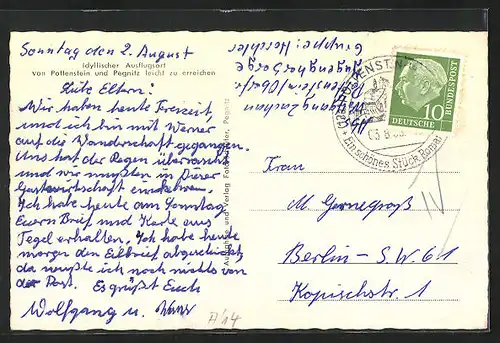 Sonntag den 2. August
Idyllischer Ausflugsort
von Pottenstein und Pegnitz leicht zu erreichen
Liebe Eltern!
Wir haben heute Freizeit,
und ich bin mit Werner
auf die Wanderschaft gegangen.
Uns hat der Regen überrascht
und wir mußten in dieser
Gastwirtschaft einkehren.
Ich habe heute am Sonntag
Euern Brief und Karte aus
Tegel erhalten. Ich habe heute
morgen den Eilbrief abgeschickt
da wußte ich noch nichts von
der Post. Es grüßt Euch
Wolfgang u.
A 14
Verlag
Pegnitz
Abs. Wolfgang
Jugendherberge
Gruppe:
Ein schönes Stück
10
DEUTSCHE
BUNDESPOST
Frau
M. Gernegroß
Berlin - S.W. 61
Kopischstr. 1
IV